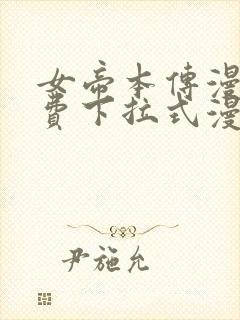 女帝本傳漫
費下拉式漫
尹施允